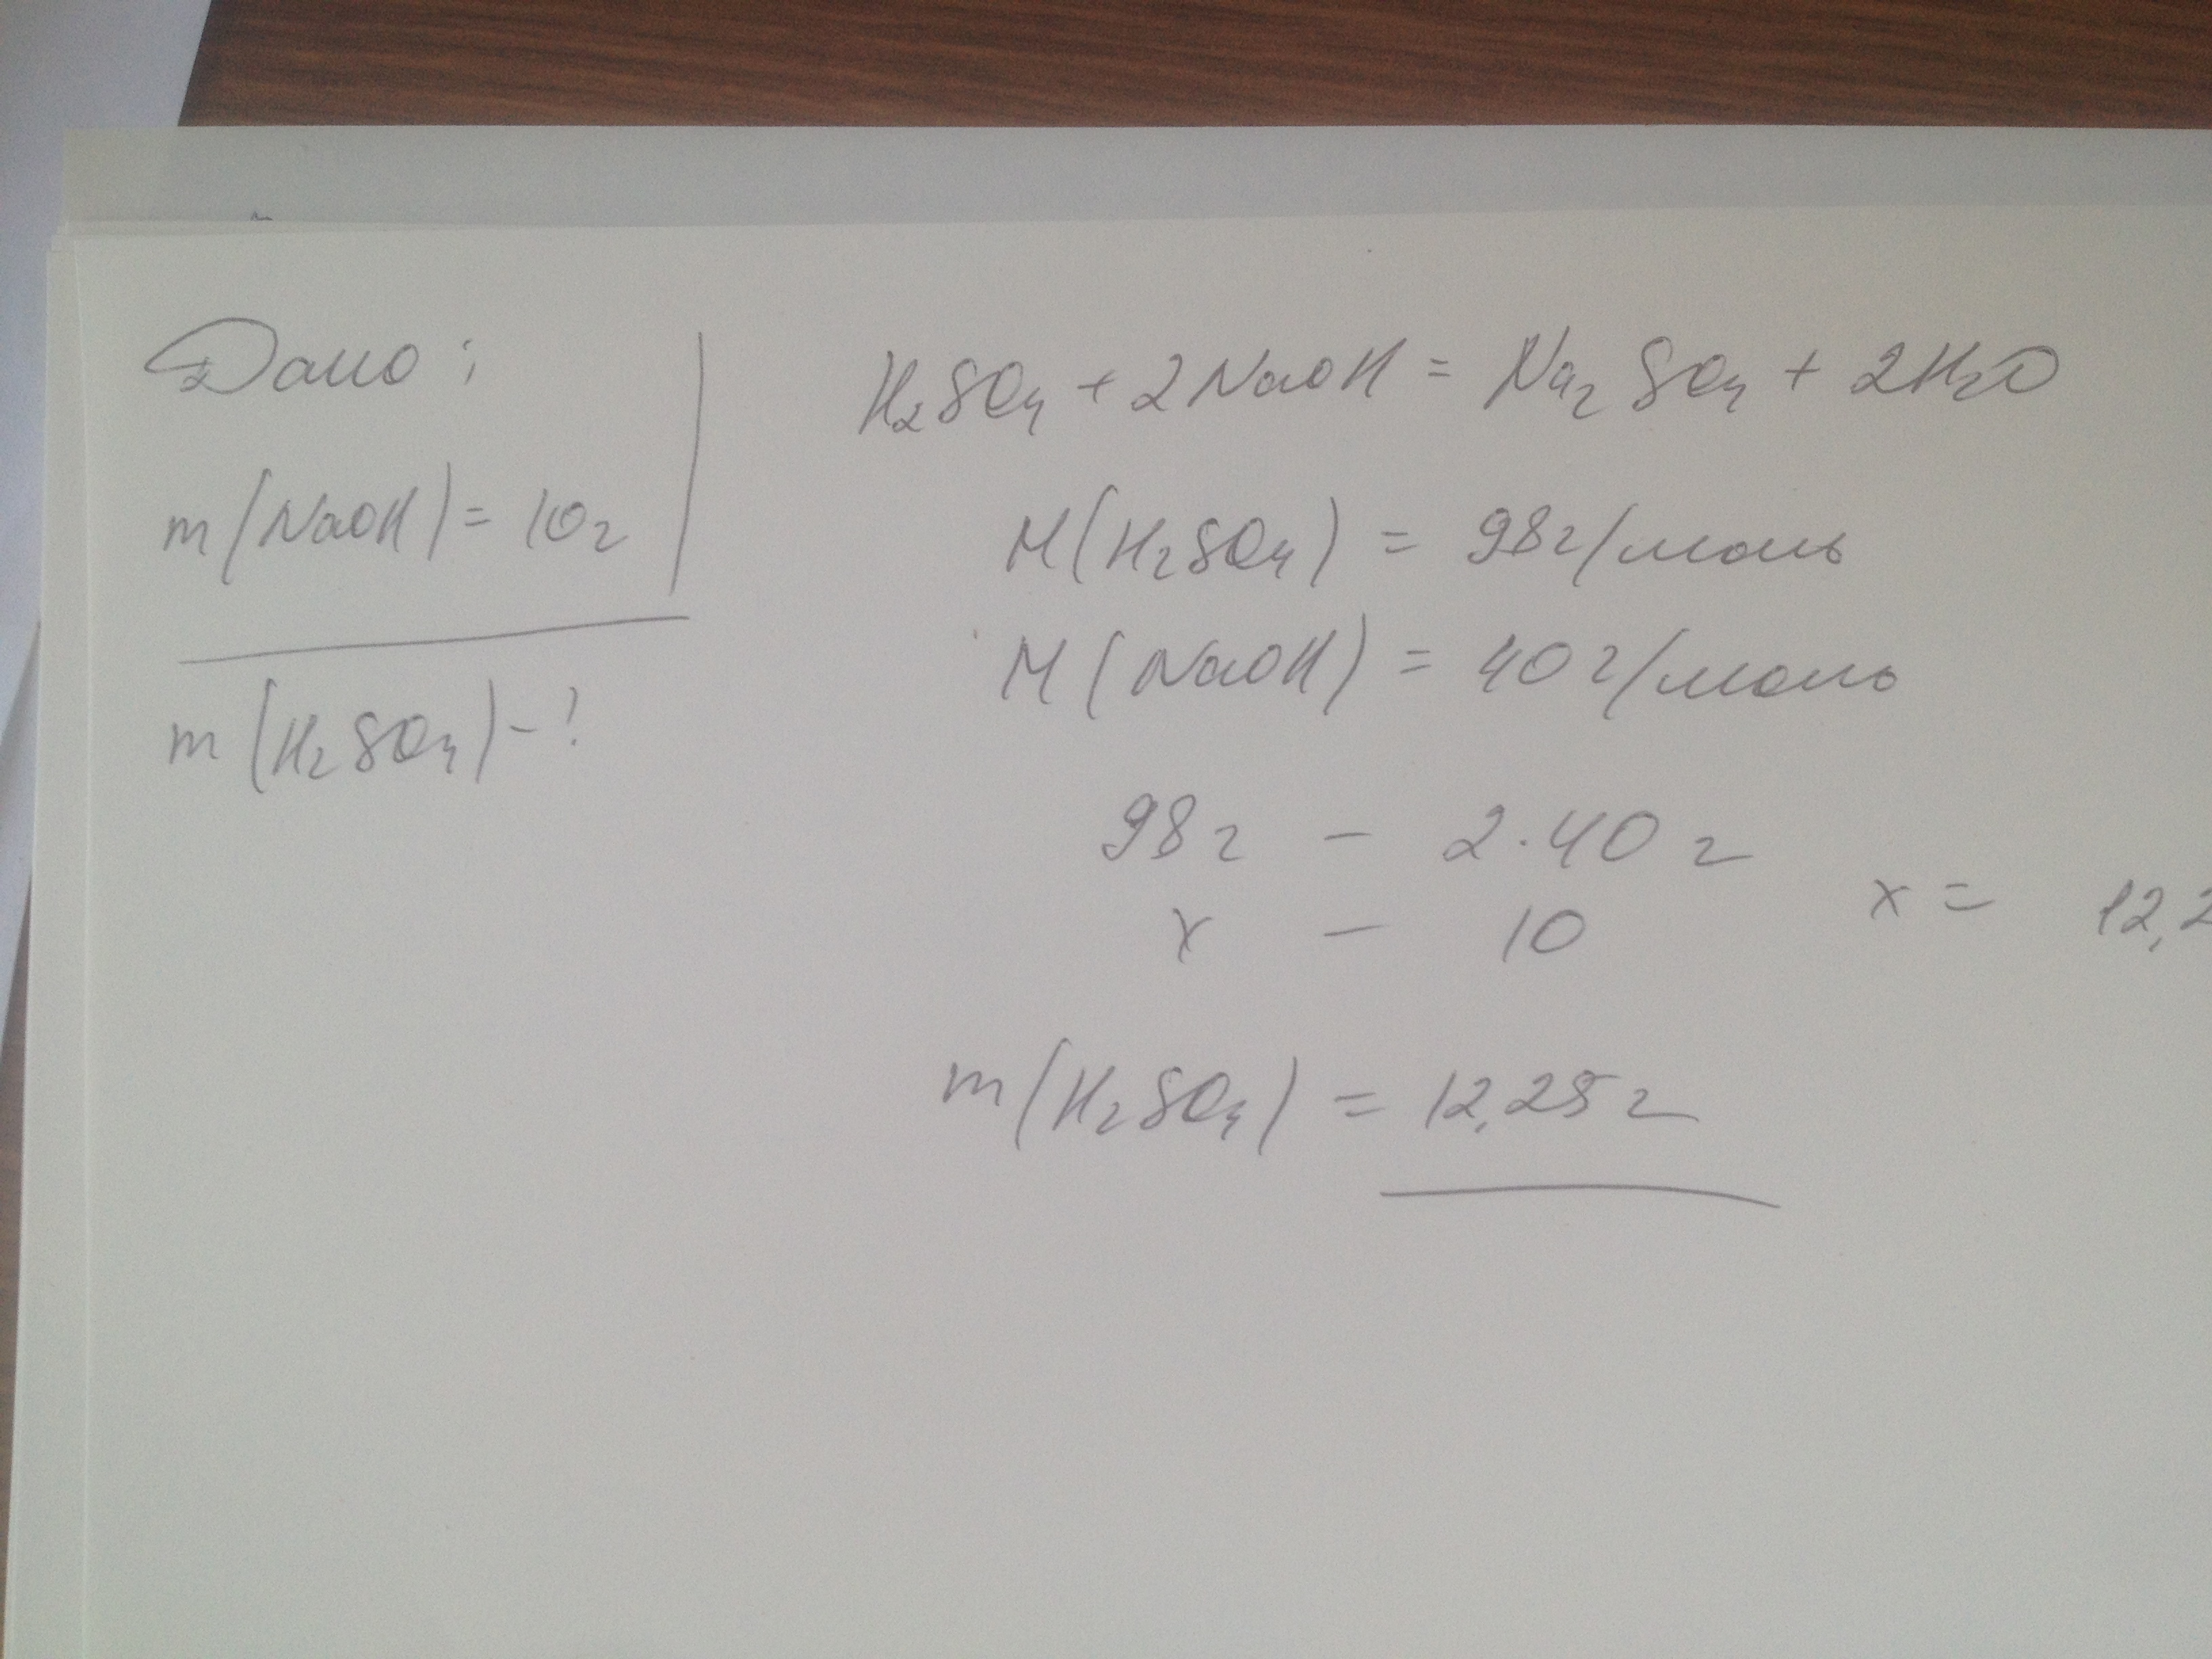 Дано:
m(NaOH) = 10г
m(H₂SO₄) - ?
H₂SO₄ + 2NaOH = Na₂SO₄ + 2H₂O
M(H₂SO₄) = 98г/моль
M(NaOH) = 40г/моль
98г - 2·40г
x - 10
x = 12,2
m(H₂SO₄) = 12,25г